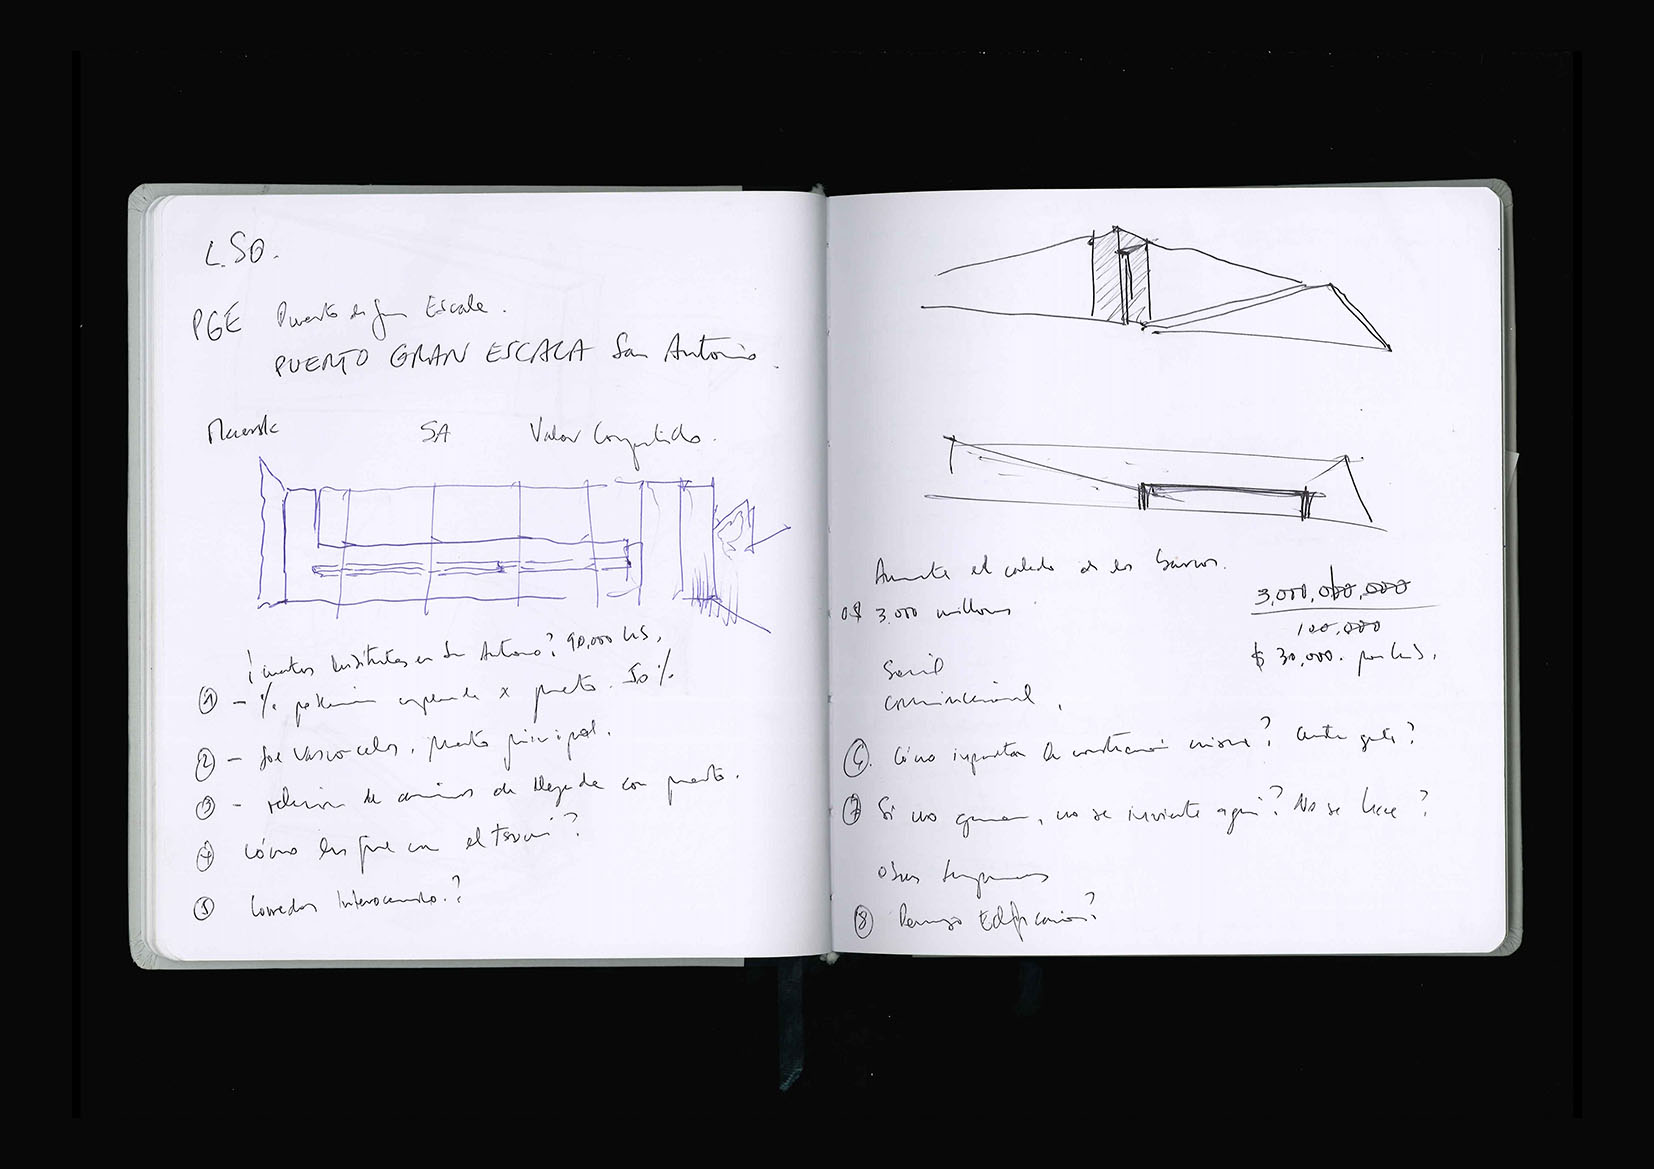 LSO.
PGE Puerto de Gran Escala.
PUERTO GRAN ESCALA San Antonio.
SA Valor Compartido.
¿cuántos habitantes en San Antonio? 90,000 hab,
① - % población x puerto. 50%
② - puerto principal.
③ - relación de caminos de llegada con puerto.
④ Cómo en el tsunami?
⑤ Corredor Interoceánico.?
Aumenta el calado de los barcos.
U$ 3.000 millones
3,000,000,000
100,000
$ 30,000. por hab,
Social
comunicacional,
⑥. Cómo impacta la construcción misma? Cuánta gente?
⑦ Si no ganan, no se invierte aquí? No se hace?
Obras tempranas
⑧ Edificaciones?